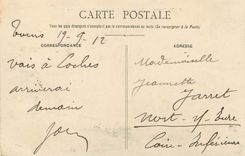 CARTE POSTALE
Tous les pays étrangers n'acceptent pas la correspondance au recto. (Se renseigner à la Poste).
CORRESPONDANCE
ADRESSE
Tours 19-9-12
vais à Loches
arriverai
demain
Mademoiselle
Jeannette
Jarret
Nort-s/-Erdre
Loire-Inférieure